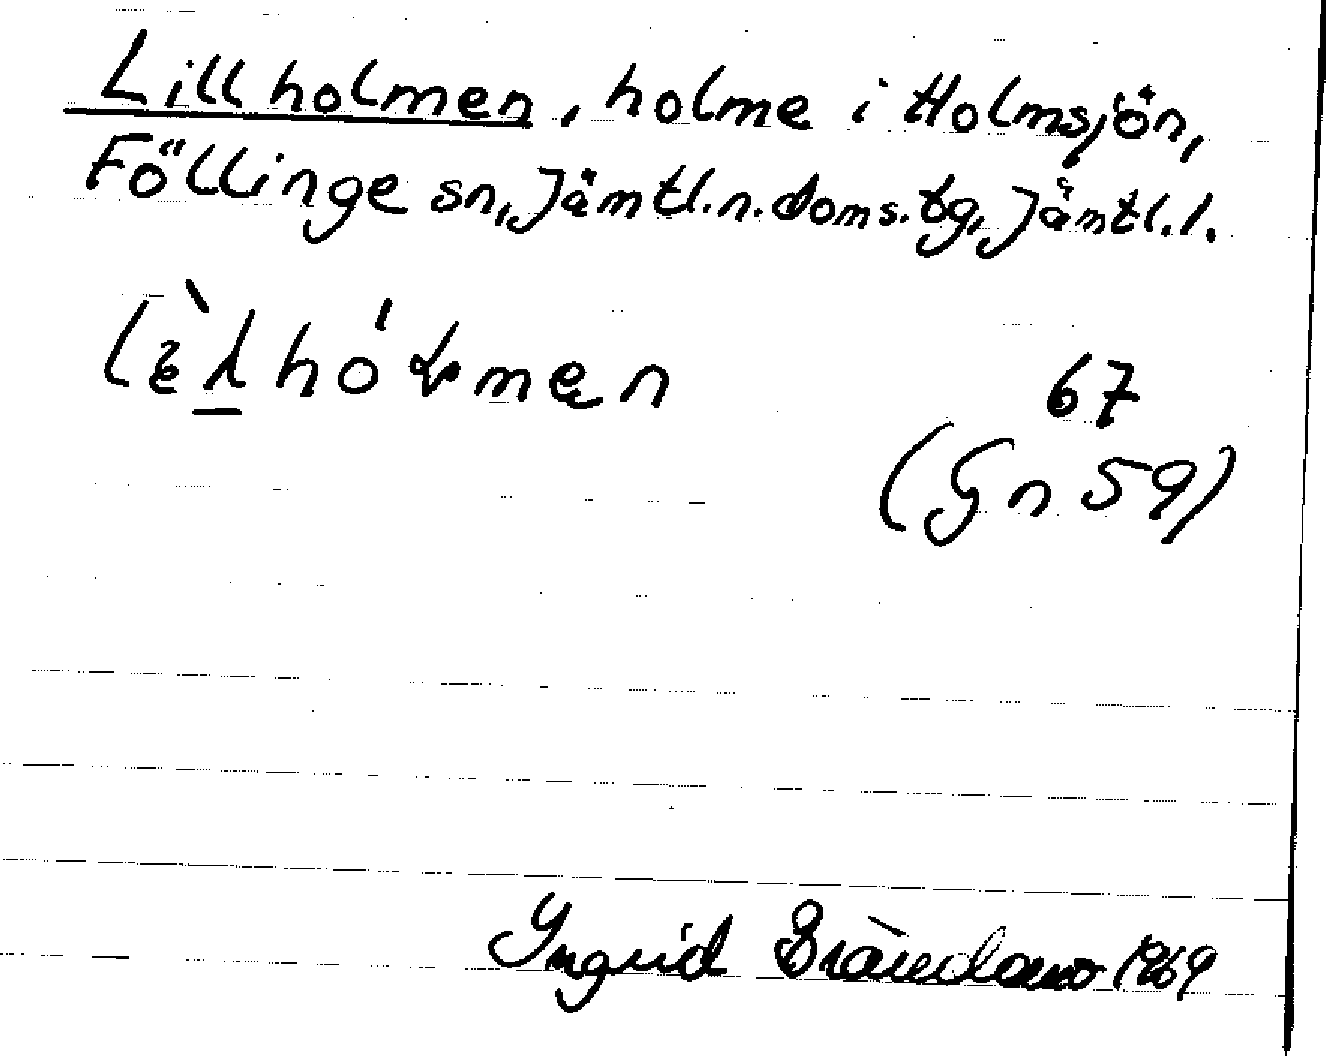 Lillholmen, holme i Holmsjön,
Föllinge sn, Jämtl. n. doms. tg, Jämtl. l.
67
(Gn 59)
Ingrid 1969